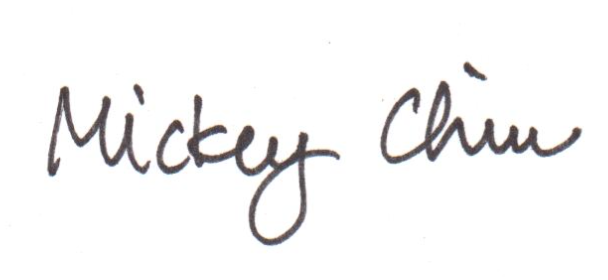 Mickey Chiu